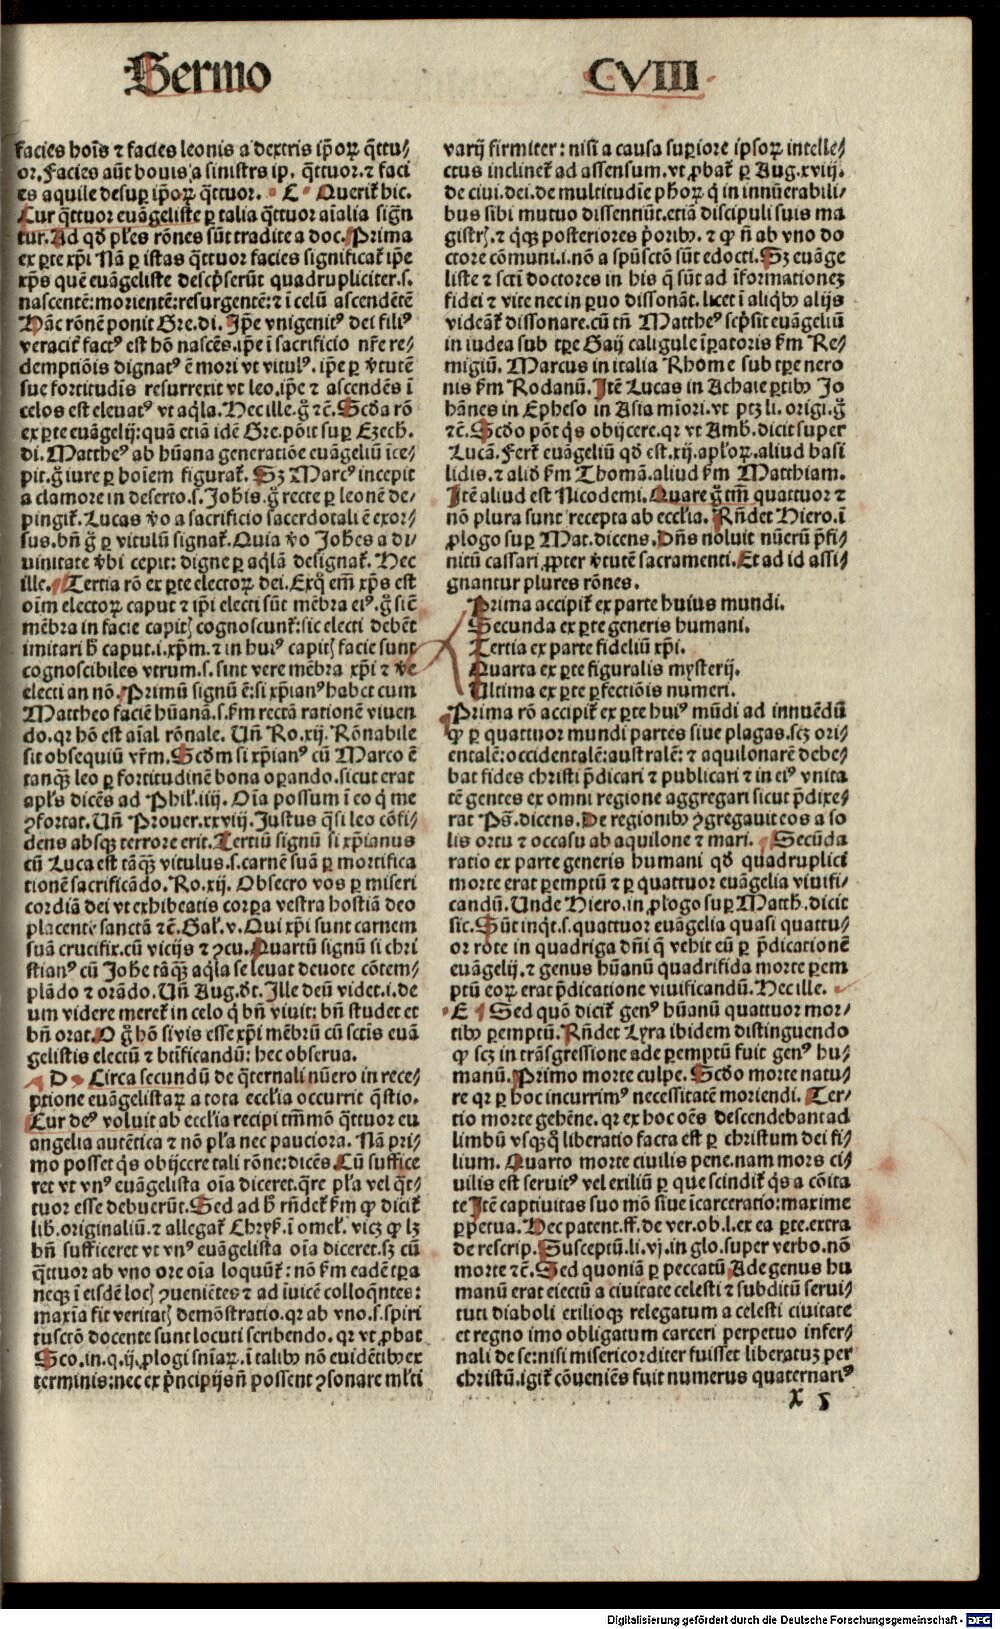 Sermo CVIII
facies hoīs ⁊ facies leonis a dextris ip̄oꝝ q̄ttu⸗
or. Facies aūt bouis a sinistrs ip. q̄ttuor. ⁊ faci
es aquile desup ip̄oꝝ q̄ttuor. C Querit᷑ hic.
Cur q̄ttuor euāgeliste ꝑ talia q̄ttuor aīalia sign̄
tur. Ad qd̄ pl̄es rōnes sūt tradite a doc. Prima
ex ꝑte xp̄i Nā ꝑ istas q̄ttuor facies significat᷑ ip̄e
xp̄s quē euāgeliste descp̄serūt quadrupliciter. s.
nascentē: morientē: resurgentē: ⁊ ī celū ascendētē
Hāc rōnē ponit Gre. di. Ip̄e vnigenitꝰ dei filiꝰ
veracit᷑ factꝰ est hō nascēs. ip̄e ī sacrificio nr̄e re⸗
demptiōis dignatꝰ ē mori vt vitulꝰ. ip̄e ꝑ v̄tutē
sue fortitudīs resurrexit vt leo. ip̄e ⁊ ascendēs ī
celos est eleuatꝰ vt aq̄la. Hec ille. g̊ ⁊c̄. Scd̄a rō
ex ꝑte euāgelij: quā etiā idē Gre. pōit suꝑ Ezech.
di. Mattheꝰ ab hūana generatiōe euāgeliū īce⸗
pit. g̊ iure ꝑ hoīem figurat᷑. Sꝫ Marcꝰ incepit
a clamore in deserto. s. Johis. g̊ recte ꝑ leonē de⸗
pingit᷑. Lucas v̊o a sacrificio sacerdotali ē exor⸗
sus. bn̄ g̊ ꝑ vitulū signat᷑. Quia v̊o Joh̄es a di
uinitate v̄bi cepit: digne ꝑ aq̄lā designat᷑. Hec
ille. Tertia rō ex ꝑte electoꝝ dei. Exq̄ em̄ xp̄s est
oīm electoꝝ caput ⁊ ip̄i electi sūt mēbra eiꝰ. g̊ sic̄
mēbra in facie capitꝭ cognoscunt᷑: sic electi debēt
imitari h̄ caput. i. xp̄m. ⁊ in huiꝰ capitꝭ facie sunt
cognoscibiles vtrum. s. sint vere mēbra xp̄i ⁊ v̄e
electi an nō. Primū signū ē: si xp̄ianꝰ habet cum
Mattheo faciē hūanā. s. fm̄ rectā rationē viuen
do. qr hō est aīal rōnale. Vn̄ Ro. xij. Rōnabile
sit obsequiū vr̄m. Scd̄m si xp̄ianꝰ cū Marco ē
tanqꝫ leo ꝑ fortitudinē bona oꝑando. sicut erat
apl̄s dicēs ad Phil᷑. iiij. Oīa possum ī eo q̇ me
ꝯfortat. Vn̄ Prouer. xxviij. Justus q̄si leo cōfi⸗
dens absqꝫ terrore erit. Tertiū signū si xp̄ianus
cū Luca est tāqꝫ vitulus. s. carnē suā ꝑ mortifica
tionē sacrificādo. Ro. xij. Obsecro vos ꝑ miseri
cordiā dei vt exhibeatis corpa vestra hostiā deo
placentē sanctā ⁊c̄. Gal᷑. v. Qui xp̄i sunt carnem
suā crucifix. cū vicijs ⁊ ꝯcu. Quartū signū si chri
stianꝰ cū Joh̄e tāqꝫ aq̄la se leuat deuote cōtem⸗
plādo ⁊ orādo. Vn̄ Aug. d̄t. Ille deū videt. i. de
um videre meret᷑ in celo q̇ bn̄ viuit: bn̄ studet et
bn̄ orat. O g̊ hō si vis esse xp̄i mēbrū cū sctīs euā
gelistis electū ⁊ btīficandū: hec obserua.
D Circa secundū de q̄ternali nūero in rece⸗
ptione euāgelistaꝝ a tota eccl̄ia occurrit q̄stio.
Cur deꝰ voluit ab eccl̄ia recipi tm̄mō q̄ttuor eu
angelia autētica ⁊ nō pl̄a nec pauciora. Nā pri⸗
mo posset q̇s obijcere tali rōne: dicēs. Cū suffice
ret vt vnꝰ euāgelista oīa diceret. q̄re pl̄a vel q̄t⸗
tuor esse debuerūt. Sed ad h̄ rn̄det᷑ fm̄ ꝙ dicit᷑
lib. originaliū. ⁊ allegat᷑ Chrys. ī omel᷑. vicꝫ ꝙ lꝫ
bn̄ sufficeret vt vnꝰ euāgelista oīa diceret. sꝫ cū
q̄ttuor ab vno ore oīa loquūt᷑: nō fm̄ eadē tꝑa
neqꝫ ī eisdē locꝭ ꝯueniētes ⁊ ad iuicē colloq̄ntes:
maxīa fit veritatꝭ demōstratio. qr ab vno. s. spiri
tusctō docente sunt locuti scribendo. qr vt ꝓbat
Sco. in. q. ij. ꝓlogi snīaꝝ. ī talibꝰ nō euidētibꝰ ex
terminis: nec ex pn̄cipijs n̄ possent ꝯsonare ml̄ti
varij firmiter: nisi a causa suꝑiore ipsoꝝ intelle⸗
ctus inclinet᷑ ad assensum. vt ꝓbat᷑ ꝑ Aug. xviij.
de ciui. dei. de multitudīe ph̄oꝝ q̇ in innūerabili⸗
bus sibi mutuo dissentiūt. etiā discipuli suis ma
gistrꝭ. ⁊ q̇qꝫ posteriores p̄oribꝰ. ⁊ ꝙ n̄ ab vno do
ctore cōmuni. i. nō a spūsctō sūt edocti. Sꝫ euāge
liste ⁊ sctī doctores in his q̄ sūt ad īformationeꝫ
fidei ⁊ vite nec in ꝑuo dissonāt. licet ī aliq̇bꝰ alijs
videāt᷑ dissonare. cū tn̄ Mattheꝰ scp̄sit euāgeliū
in iudea sub tꝑe Gaij caligule īꝑatoris fm̄ Re⸗
migiū. Marcus in italia Rhome sub tꝑe nero
nis fm̄ Rodanū. Itē Lucas in Achaie ꝑtibꝰ Jo
hānes in Epheso in Asia mīori. vt ptꝫ li. origi. g̊
⁊c̄. Scd̄o pōt q̇s obijcere. qr vt Amb. dicit super
Lucā. Fert᷑ euāgeliū qd̄ est. xij. apl̄oꝝ. aliud basi
lidis. ⁊ aliḋ fm̄ Thomā. aliud fm̄ Matthiam.
Itē aliud est Nicodemi. Quare g̊ tm̄ quattuor ⁊
nō plura sunt recepta ab eccl̄ia. Rn̄det Hiero. ī
ꝓlogo suꝑ Mat. dicens. Dn̄s noluit nūerū p̄fi⸗
nitū cassari ꝓpter v̄tutē sacramenti. Et ad id assi⸗
gnantur plures rōnes.
Prima accipit᷑ ex parte huius mundi.
Secunda ex ꝑte generis humani.
Tertia ex parte fideliū xp̄i.
Quarta ex ꝑte figuralis mysterij.
Ultima ex ꝑte ꝑfectiōis numeri.
Prima rō accipit᷑ ex ꝑte huiꝰ mūdi ad innuēdū
ꝙ ꝑ quattuor mundi partes siue plagas. scꝫ ori⸗
entalē: occidentalē: australē: ⁊ aquilonarē debe⸗
bat fides christi p̄dicari ⁊ publicari ⁊ in eiꝰ vnita
tē gentes ex omni regione aggregari sicut p̄dixe⸗
rat Ps̄. dicens. De regionibꝰ ꝯgregauit eos a so
lis ortu ⁊ occasu ab aquilone ⁊ mari. Secūda
ratio ex parte generis humani qd̄ quadruplici
morte erat ꝑemptū ⁊ ꝑ quattuor euāgelia viuifi⸗
candū. Unde Hiero. in ꝓlogo suꝑ Matth. dicit
sic. Sūt inq̇t. s. quattuor euāgelia quasi quattu⸗
or rote in quadriga dn̄i q̄ vehit eū ꝑ p̄dicationē
euāgelij. ⁊ genus hūanū quadrifida morte ꝑem
ptū eoꝝ erat p̄dicatione viuificandū. Hec ille.
E Sed quō dicit᷑ genꝰ hūanū quattuor mor⸗
tibꝰ ꝑemptū. Rn̄det Lyra ibidem distinguendo
ꝙ scꝫ in trāsgressione ade ꝑemptū fuit genꝰ hu⸗
manū. Primo morte culpe. Scd̄o morte natu⸗
re qr ꝑ hoc incurrimꝰ necessitatē moriendi. Ter⸗
tio morte gehēne. qr ex hoc oēs descendebant ad
limbū vsqꝫ q̊ liberatio facta est ꝑ christum dei fi⸗
lium. Quarto morte ciuilis pene. nam mors ci⸗
uilis est seruitꝰ vel exiliū ꝑ que scindit᷑ q̇s a cōita
te Itē captiuitas suo mō siue īcarceratio: maxime
ꝑpetua. Hec patent. ff. de ver. ob. l. ex ea ꝑte. extra
de rescrip. Susceptū. li. vj. in glo. super verbo. nō
morte ⁊c̄. Sed quoniā ꝑ peccatū Ade genus hu
manū erat eiectū a ciuitate celesti ⁊ subditū serui⸗
tuti diaboli exilioqꝫ relegatum a celesti ciuitate
et regno imo obligatum carceri perpetuo infer⸗
nali de se: nisi misericorditer fuisset liberatuꝫ per
christū. igit᷑ cōueniēs fuit numerus quaternariꝰ
X 5
Digitalisierung gefördert durch die Deutsche Forschungsgemeinschaft - DFG